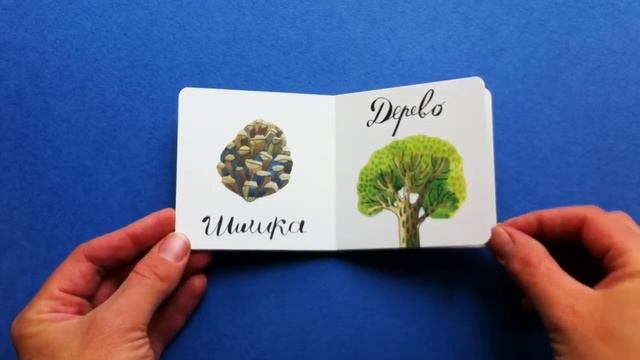 Шишка
Дерево